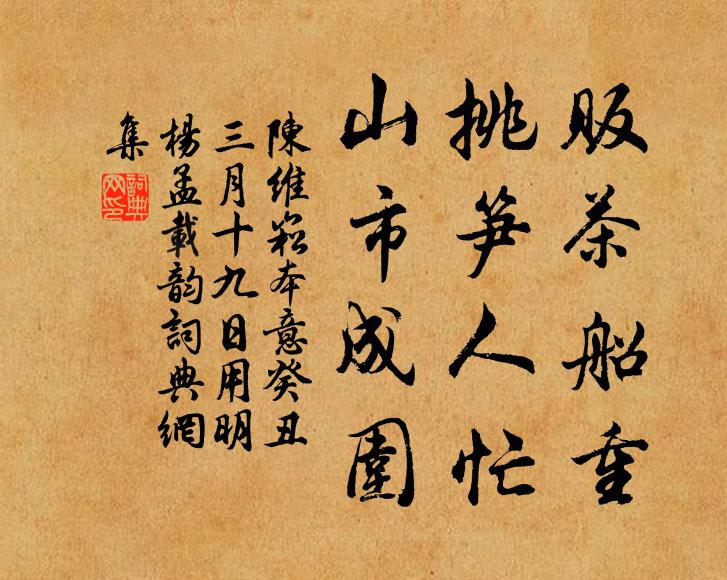 販茶船重
挑笋人忙
山市成圍
陳維崧本意癸丑
三月十九日用明
楊孟載韵詞典網
集
詞典网印